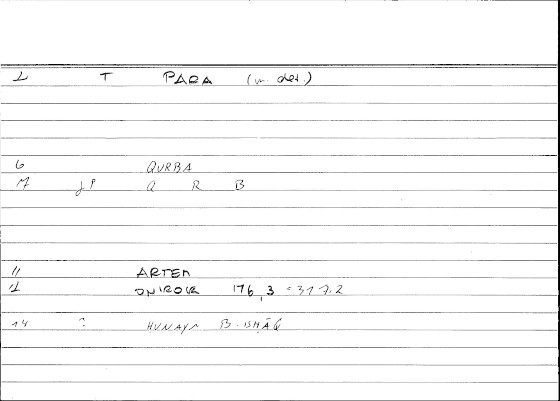 1 T PARA (w. det.)
6 QURBA
7 JP Q R B
11 ARTEM
12 ONIROCR 176,3 = 317.2
14 ? HUNAYN B. ISḤĀQ